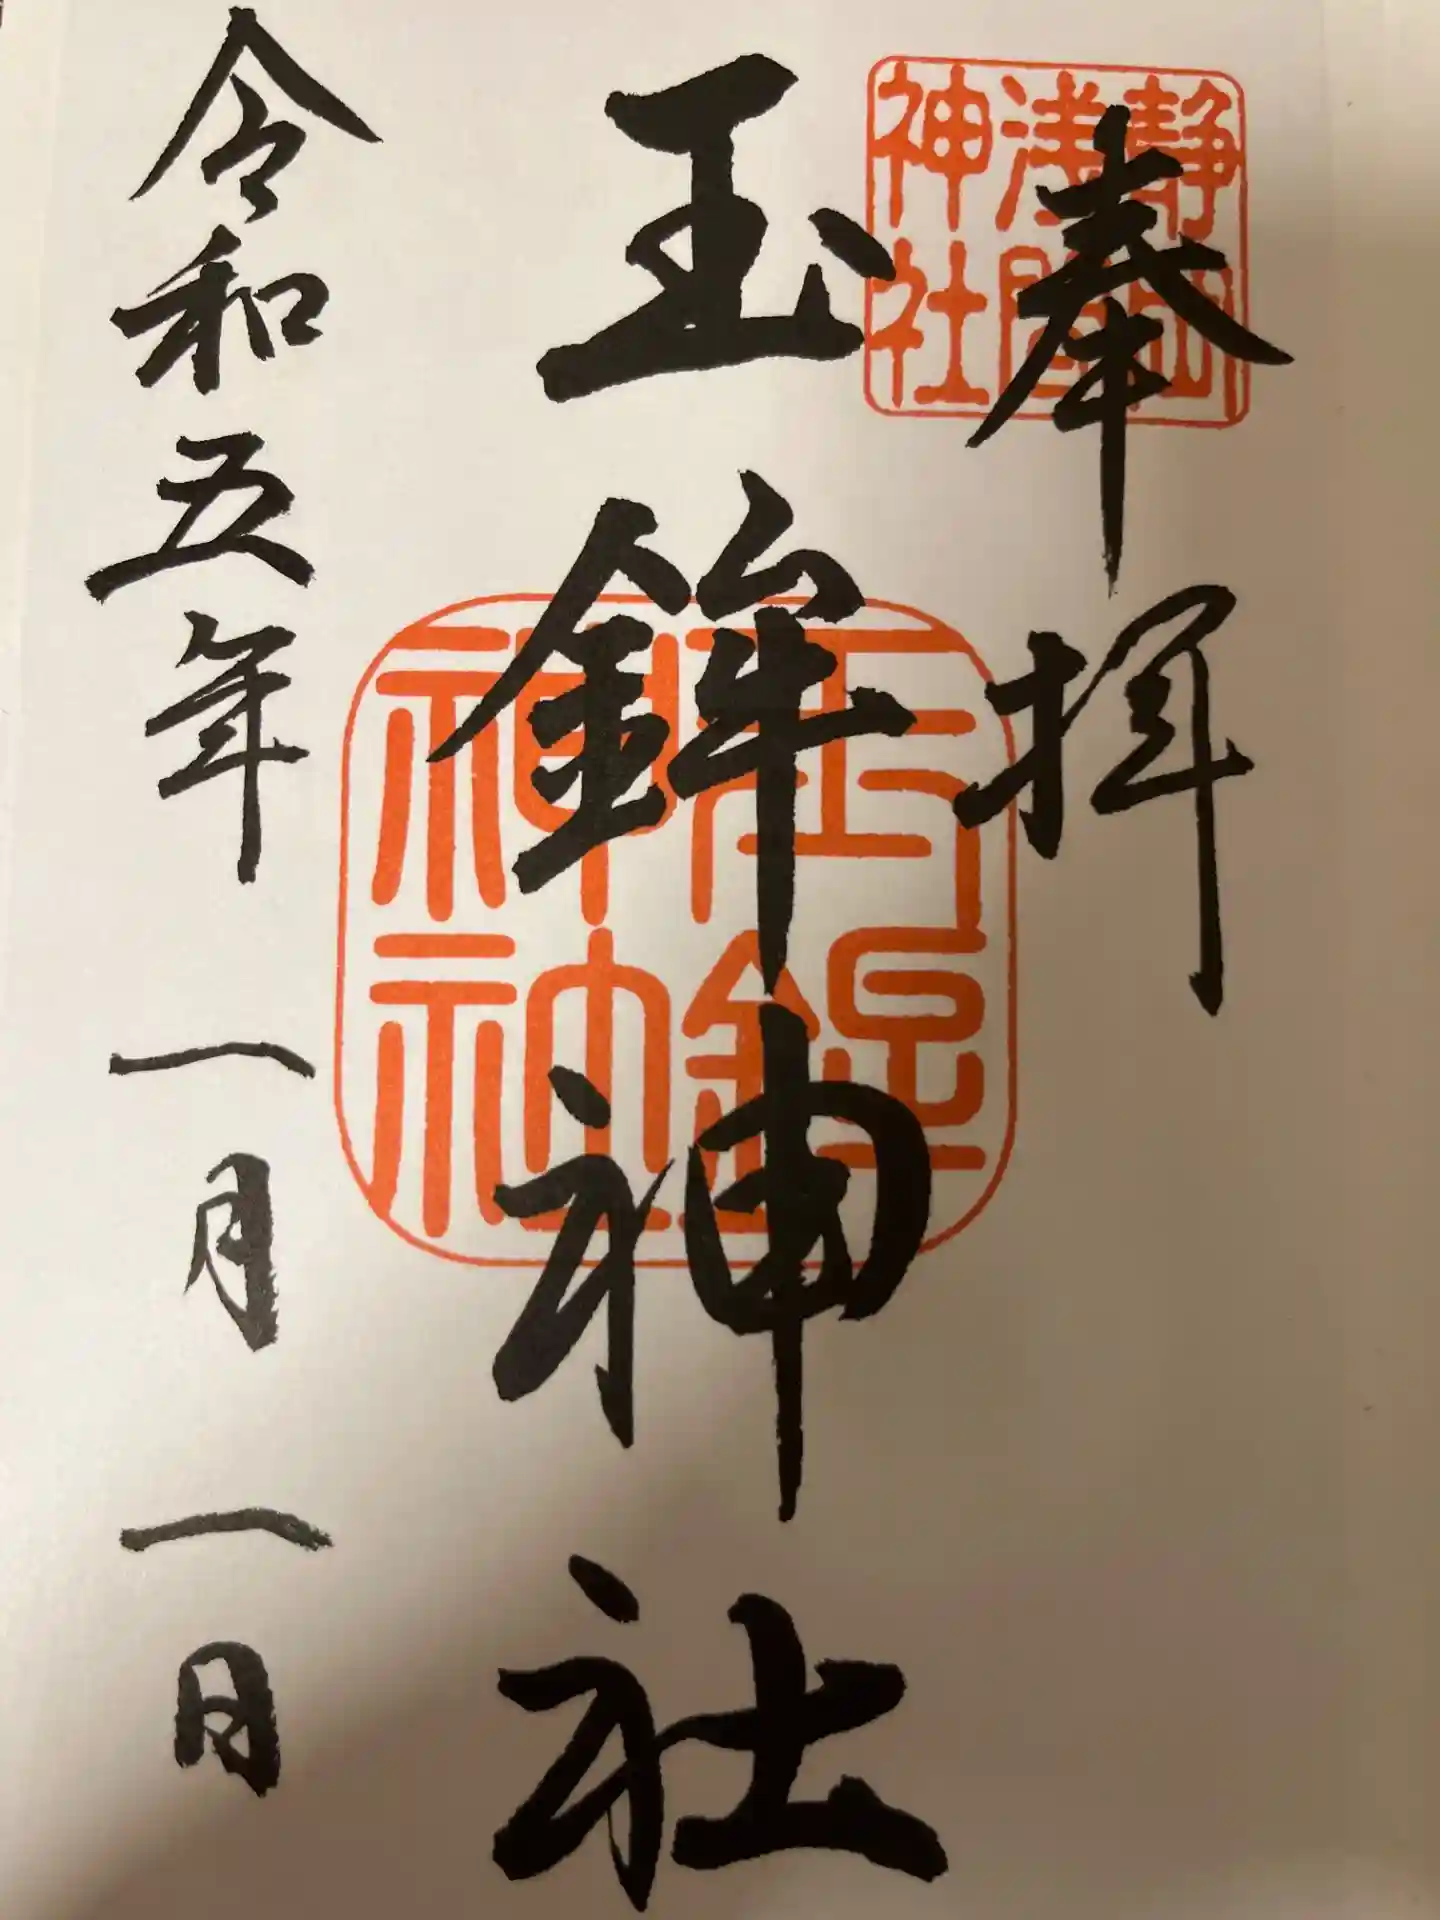 奉拝
静岡
浅間
神社
玉鉾神社
神社
令和五年一月一日